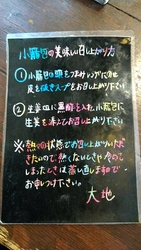 小籠包の美味しい召し上がり方
① 小籠包の頭をつまみレンゲにのせ
皮を破きスープをお召し上り下さい
② 生姜皿に黒酢を入れ小籠包に
生姜を添えてお召し上がり下さい
※熱々の状態でお召し上がりいただ
きたいので、熱くないときや冷めて
しまったときは蒸し直しますので
お申しつけ下さい。
大地